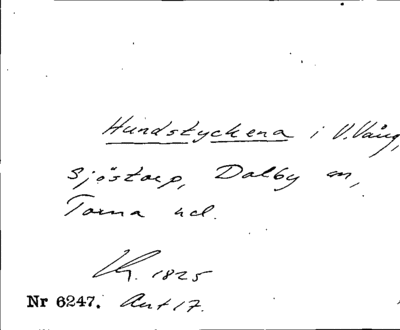 Hundstyckena i V. Vång,
Sjöstorp, Dalby sn,
Torna hd.
1825
Nr 6247. Akt 17.